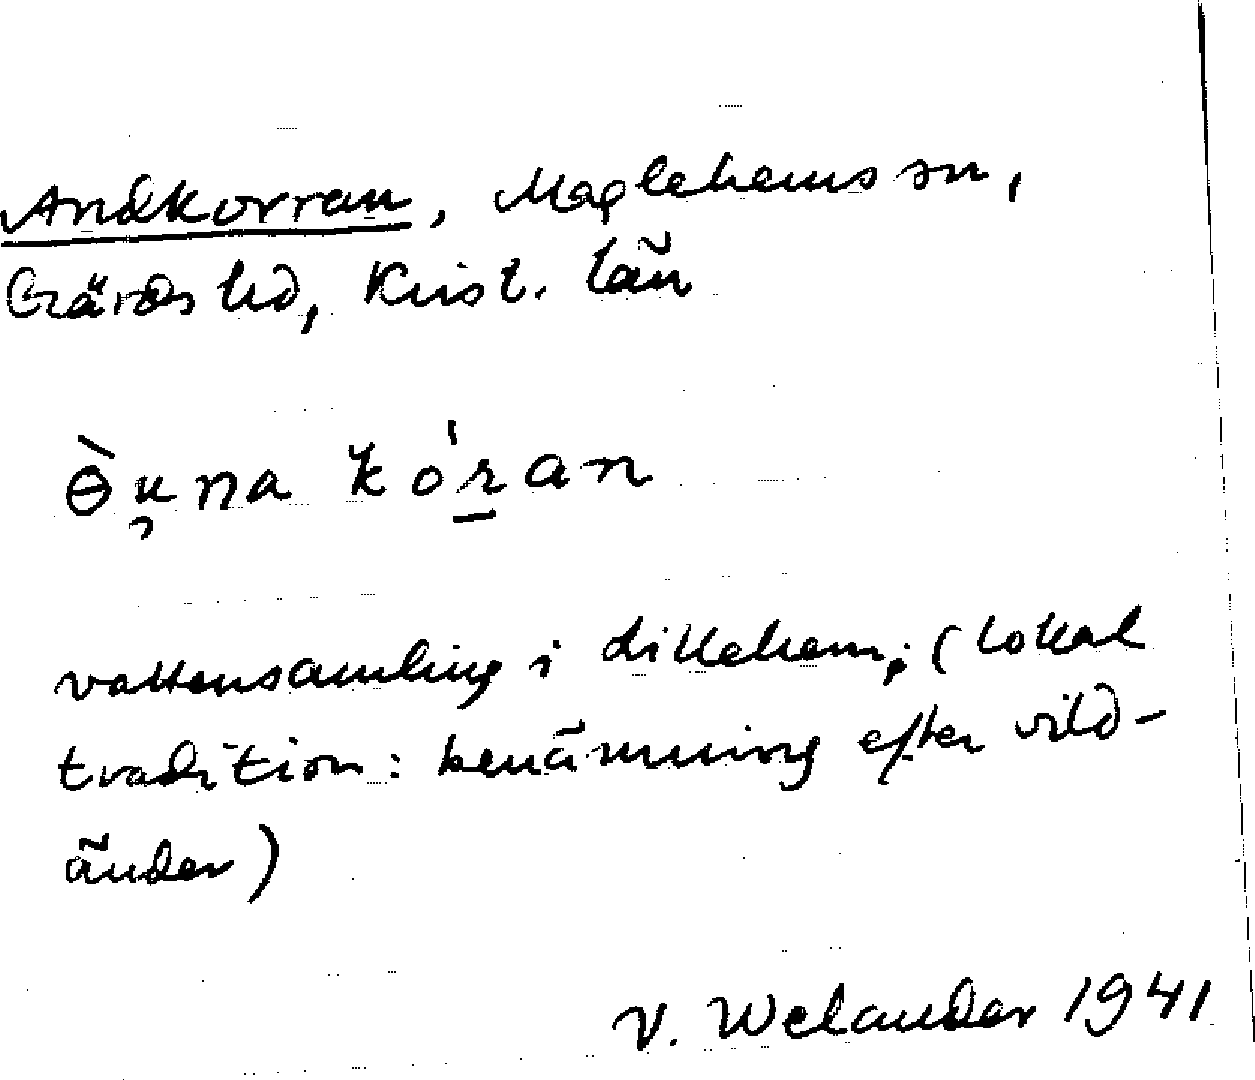 Andkorran, Maglehems sn,
Gärds hd, Krist. län
vattensamling i Lillehem; (lokal
tradition: benämning efter vild-
änder)
V. Welander 1941